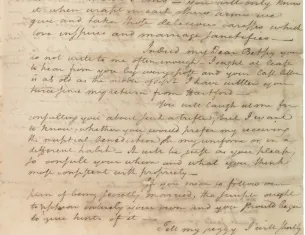 it when wrapt in each others arms we
give and take those delicious caresses which
love inspires and marriage sanctifies.
Indeed my Dear Betsey you
do not write to me often enough. I ought at least
to hear from you by every post and your last letter
is as old as the middle of Sept. I have written you
twice since my return from Hartford
You will laugh at me for
consulting you about such a trifle; but I want
to know, whether you would prefer my receiving
the nuptial benediction in my uniform or in a
different habit. It will be just as you please;
so consult your whim and what you think
most consistent with propriety.
If you mean to follow our
plan of being secretly married, the
to appear entirely your own and you
to give hints of it
Tell my peggy I will